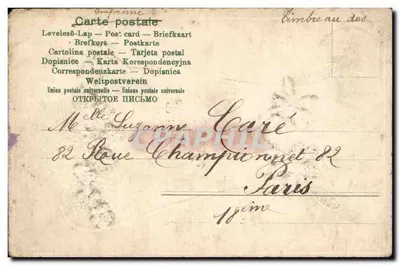 Imprimé
timbre au dos
Carte postale
Levelező-Lap — Post card — Briefkaart
Brefkort — Postkarte
Cartolina postale — Tarjeta postal
Dopisnice — Karta Korespondencyjna
Correspondenzkarte — Dopisnica
Weltpostverein
Union postale universelle — Unione postale universale
ОТКРЫТОЕ ПИСЬМО
Mlle Suzanne Caré
82 Roue Championnet 82
Paris
18eme